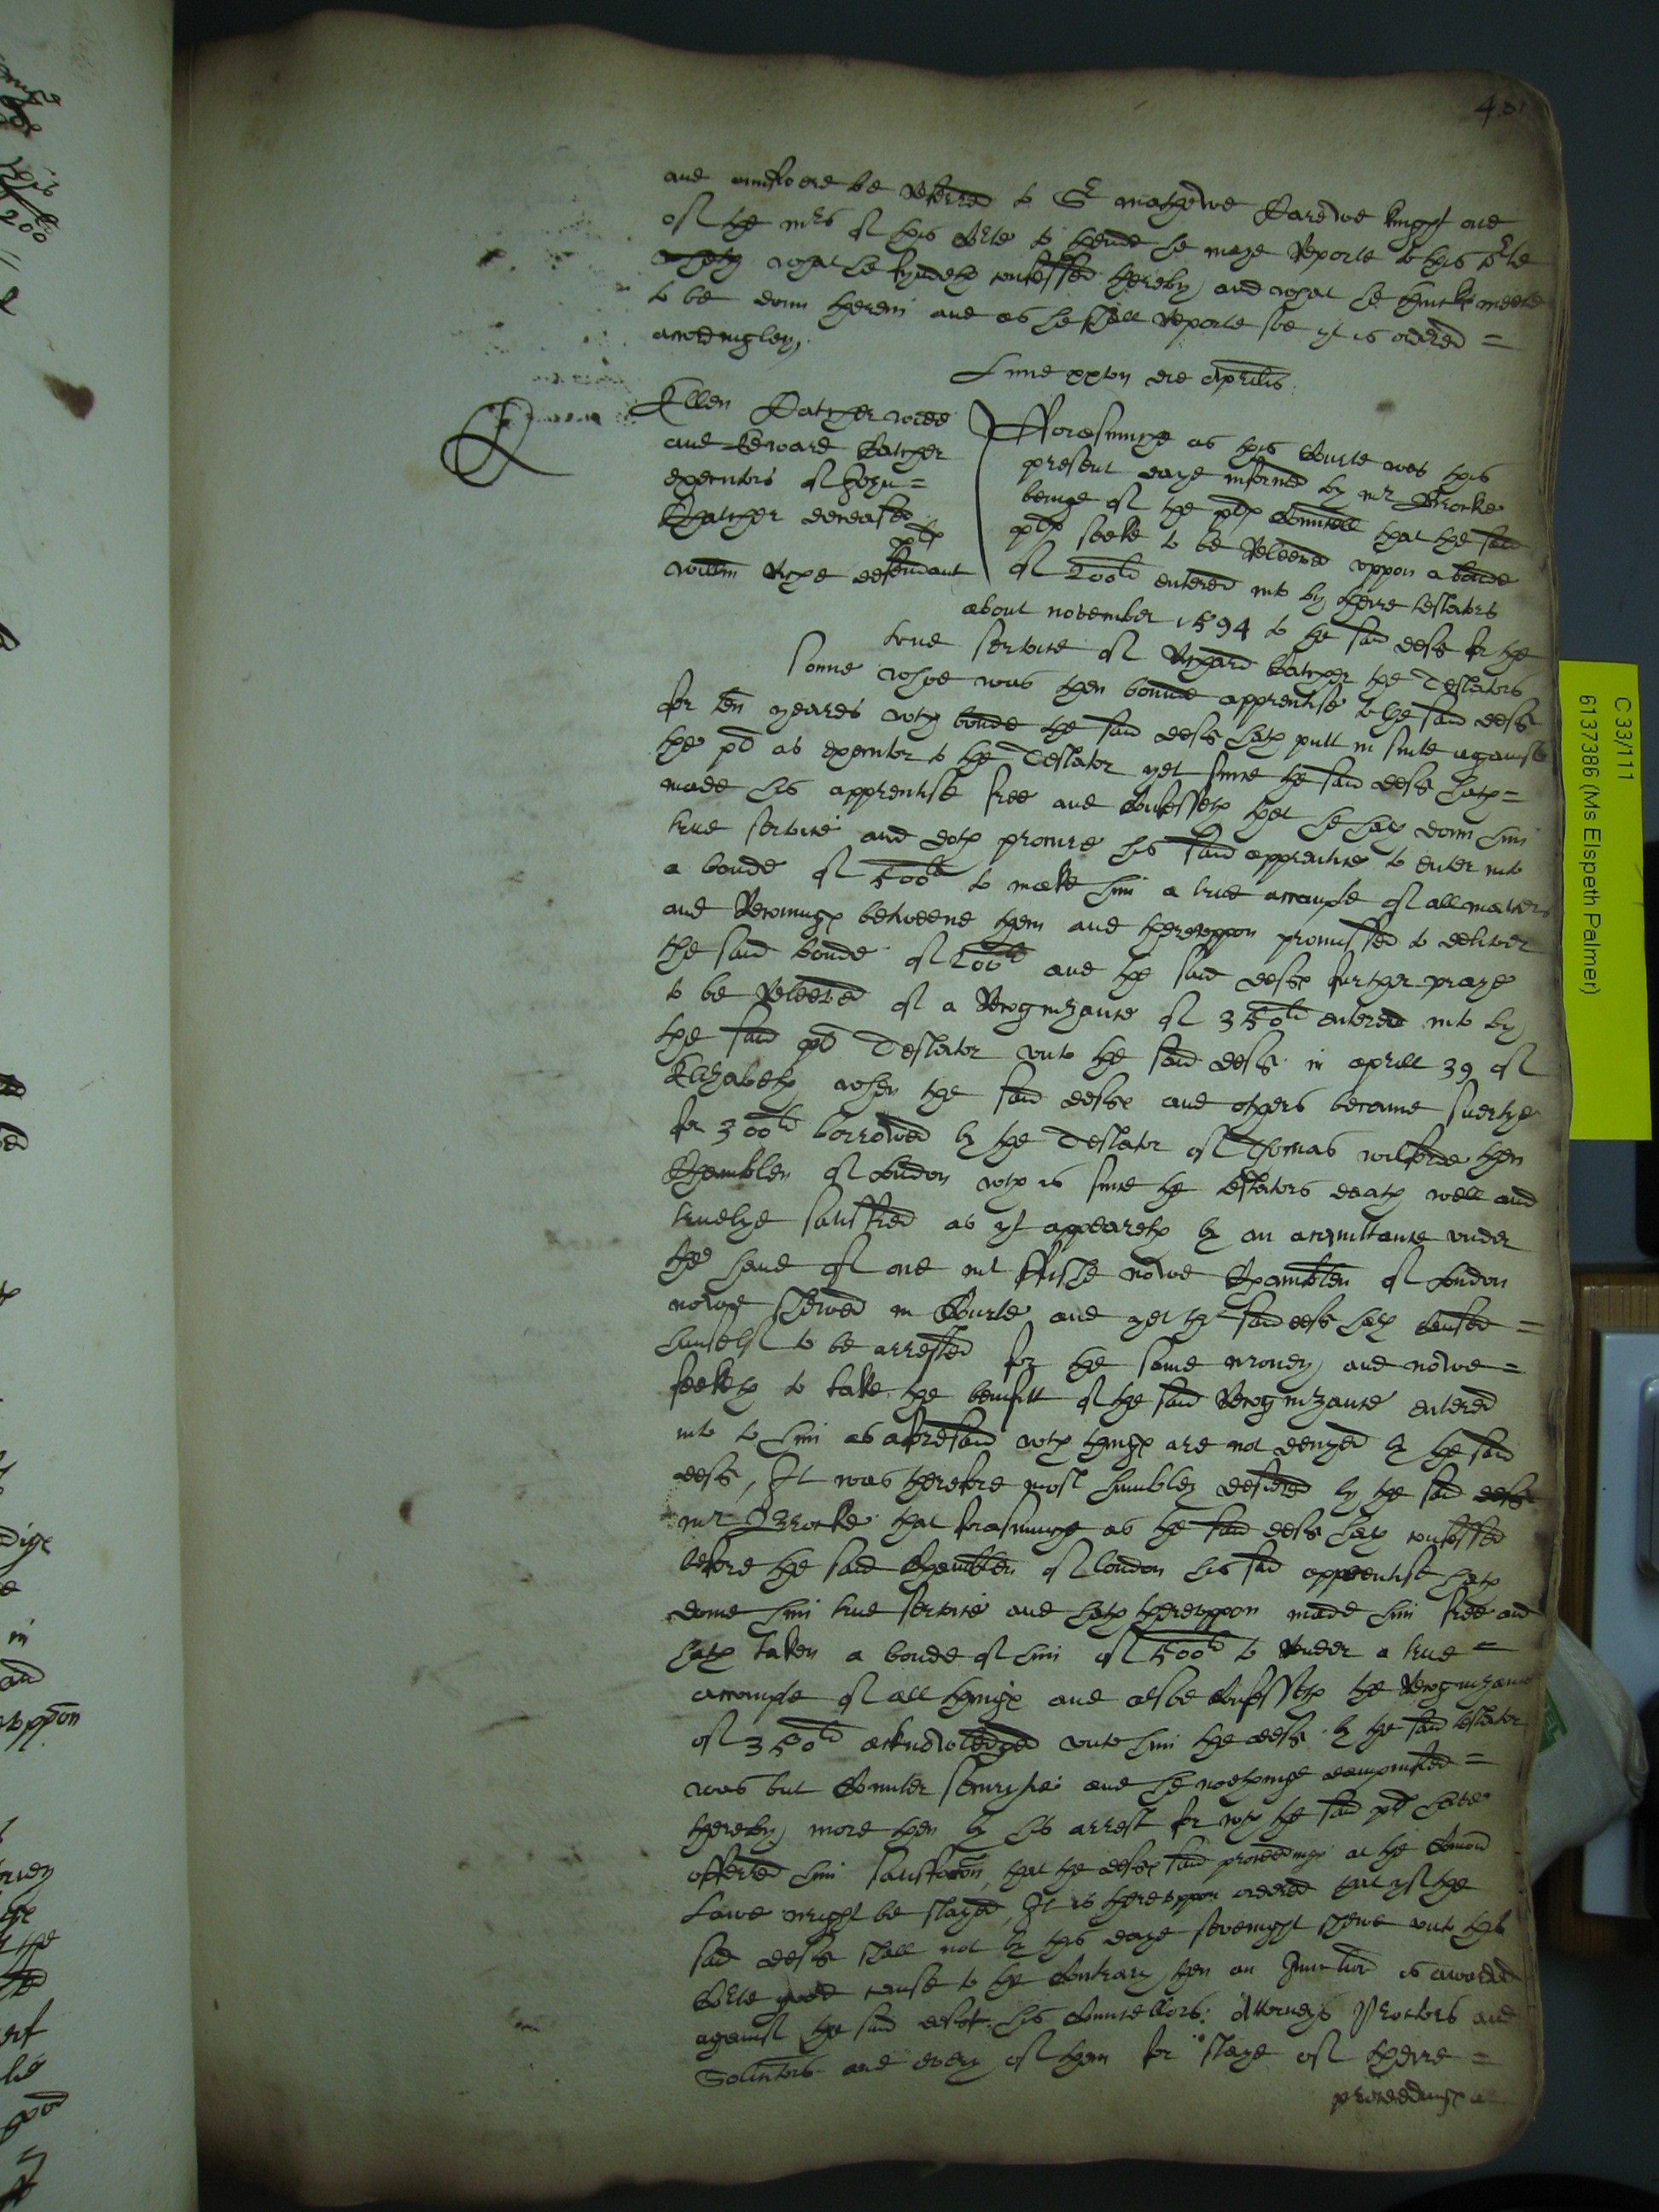 and answere be referred to Sr Mathewe Carewe knight one
of the mrs of this Corte to thende he maye reporte to this Corte
what he fyndeth confessed thereby and what he thinke meete
to be donn therein and as he shall reporte soe yt is ordred =
accordingley
Lune xxvto die Aprilis
Ellen Catcher widd
and Edward Catcher
executors of John =
Catcher deceased
plts
Willm Rype defendant
Fforasmuche as this Courte was this
present daye informed by mr Brocke
beinge of the plts Counsell that the said
plts seeke to be releeved uppon a bonde
of 200li entered into by theire testators
about november 1594 to the said deft for the
true service of Richard Catcher the Testators
sonne whoe was then bounde apprentise to the said deft
for ten yeares wch bonde the said deft hath putt in suite against
the plt as executor to the Testator yet since the said deft hath =
made his apprentise free and Confesseth that he hath donn him
true service and doth procure his said apprentice to enter into
a bonde of 500li to make him a true accompte of all matters
and Reconings betweene them and thereuppon promissed to deliver
the said bonde of 200li and the said deft further praye
to be releeved of a Recognizance of 350li entered into by
the said plt Testator unto the said deft in aprill 39 of
Elizabeth when the said deft and others became suertye
for 300li borrowed by the Testator of Thomas Wilforde then
Chamblen of London wch is since the testators death well and
truelye satisfied as yt appeareth by an acquittance under
the hand of one mr ffishe nowe Chamblen of London
nowe shewed in Courte and yet the said deft hath caused =
himself to be arrested for the same money and nowe =
seeketh to take the benifitt of the said Recognizance entered
into to him as aforesaid wch things are not denyed by the said
deft, It was therefore most humbley desiered by the said deft
mr Brocke that forasmuch as the said deft hath confessed
before the said Chamblen of London his said apprentise hath
donne him true service and hath thereuppon made him free and
hath taken a bonde of him of 500li to render a true =
accompte of all things and alsoe Confesseth the Recognizance
of 350li acknowledged unto him the deft by the said testator
was but Counter securitie and he nothinge dampnified =
thereby more then by his arrest for wch the said plt have
offered him satisfaccon, that the defts said proceedings at the Comon
Lawe might be stayed, It is thereuppon ordered that yf the
said deft shall not by this daye sevenight shewe unto this
Corte good cause to the Contrary then an Iniunction is awarded
against the said deft his Counsellors: Attorneys Proctors and
Solicitors and every of them for staye of theire =
proceedings
C 33/111
6137386 (Ms Elspeth Palmer)